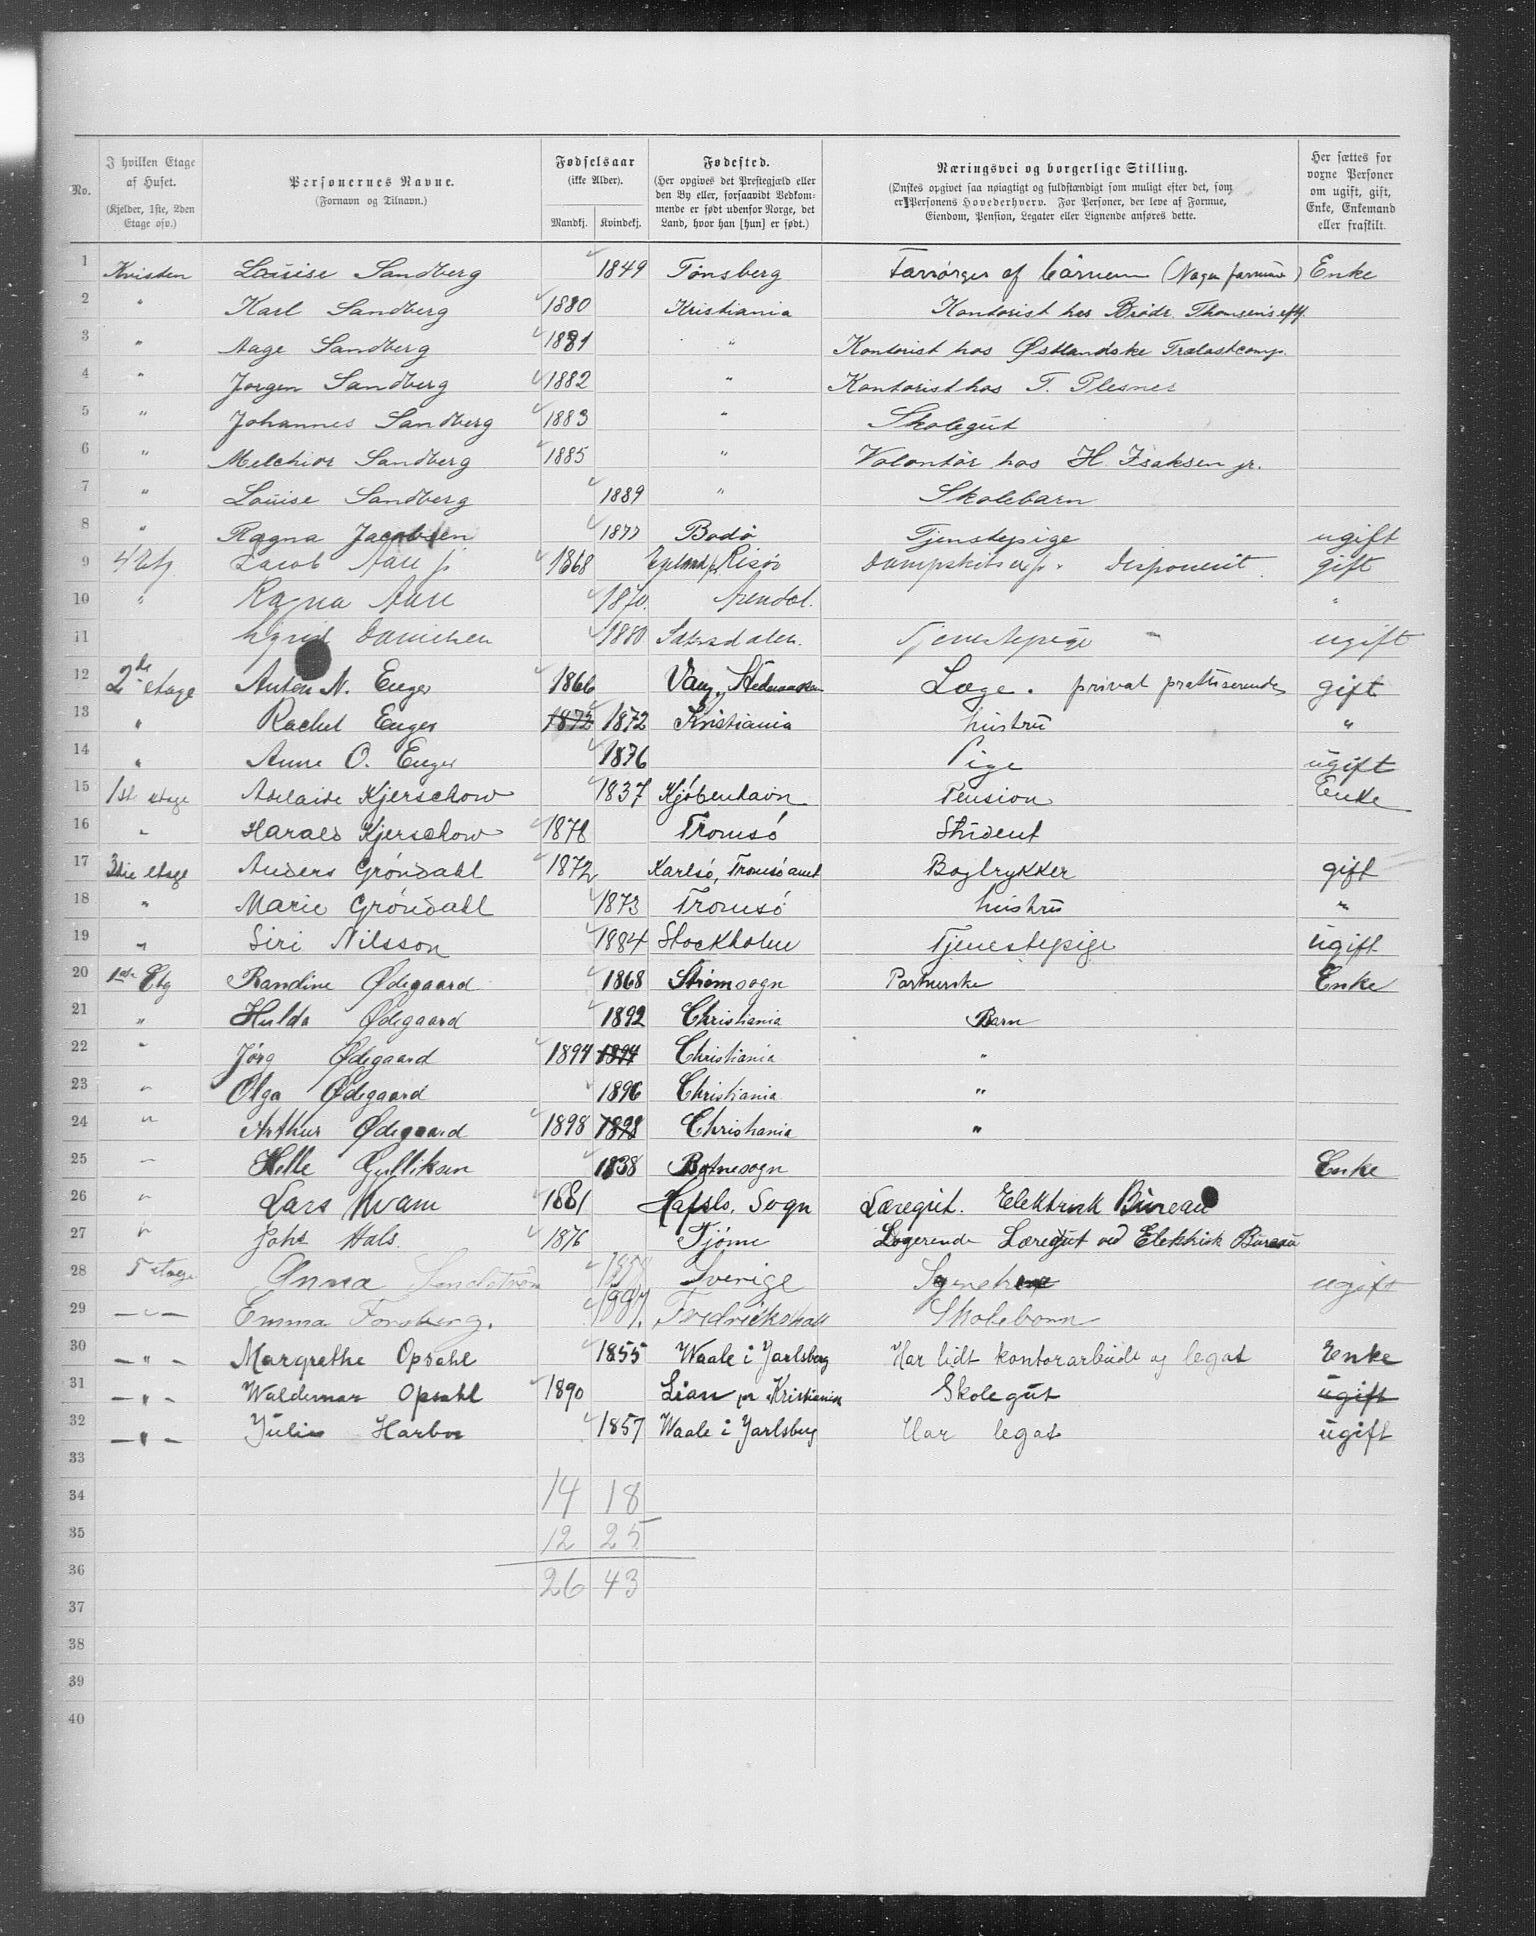 No. | I hvilken Etage af Huset. (Kjelder, 1ste, 2den Etage osv.) | Personernes Navne. (Fornavn og Tilnavn.) | Fødselsaar (ikke Alder). Mandkj. Kvindekj. | Fødested. (Her opgives det Prestegjæld eller den By eller, forsaavidt Vedkommende er født udenfor Norge, det Land, hvor han [hun] er født.) | Næringsvei og borgerlige Stilling. (Ønskes opgivet saa nøiagtigt og fuldstændigt som muligt efter det, som er Personens Hovederhverv. For Personer, der leve af Formue, Eiendom, Pension, Legater eller Lignende anføres dette.) | Her sættes for voxne Personer om ugift, gift, Enke, Enkemand eller fraskilt.
1 Kvisten Louise Sandberg 1849 Tønsberg af (Nogen formue) Enke
2 " Karl Sandberg 1880 Kristiania Kontorist hos Brødr. Thomsens eftf.
3 " Aage Sandberg 1881 " Kontorist hos Østlandske Trælastcomp.
4 " Jørgen Sandberg 1882 " Kontorist hos T. Plesner
5 " Johannes Sandberg 1883 " Skolegut
6 " Melchior Sandberg 1885 " Volontør hos H. Isaksen jr.
7 " Louise Sandberg 1889 " Skolebarn
8 " Ragna Jacobsen 1877 Bodø Tjenstepige ugift
9 4 Etg Jacob Aall jr 1868 Risør Dampskibsexp. Disponent gift
10 " Ragna Aall 1870 Arendal. "
11 Danielsen 1880 Sætersdalen. Tjenestepige " ugift
12 2de etage Anton N. Enger 1866 Vang, Hedemarken Læge. privat praktiserende gift
13 " Rachel Enger 1872 1872 Kristiania hustru "
14 " Anne O. Enger 1876 Pige ugift
15 1st etage Adelaide Kjerschow 1837 Kjøbenhavn Pension Enke
16 " Harald Kjerschow 1878 Tromsø Student
17 3die etage Anders Grøndahl 1872 Karlsø, Tromsø amt Bogtrykker gift
18 " Marie Grøndahl 1873 Tromsø hustru "
19 " Siri Nilsson 1884 Stockholm Tjenestepige ugift
20 1ste Etg Randine Ødegaard 1868 Strømsogn Portnerske Enke
21 " Hulda Ødegaard 1892 Christiania Barn
22 " Jørg Ødegaard 1894 1894 Christiania "
23 " Olga Ødegaard 1896 Christiania "
24 " Arthur Ødegaard 1898 1898 Christiania "
25 " Helle Gulliksen 1838 Botnesogn Enke
26 " Lars Kvam 1881 Hafslo, Sogn Læregut. Elektrisk Bureau
27 " Johs Hals. 1876 Tjøme Logerende Læregut ved Elektrisk Bureau
28 5 etage Anna Sandström Sverige ugift
29 — " — Emma Forsberg. 1887. Fredrikshald Skolebarn
30 — " — Margrethe Opsahl 1855 Waale i Jarlsberg Har lidt kontorarbeide og legat Enke
31 — " — Waldemar Opsahl 1890 Lian pr Kristiania Skolegut ugift
32 — " — Julie Harboe 1857 Waale i Jarlsberg Har legat ugift
33
34 14 18
35 12 25
36 26 43
37
38
39
40